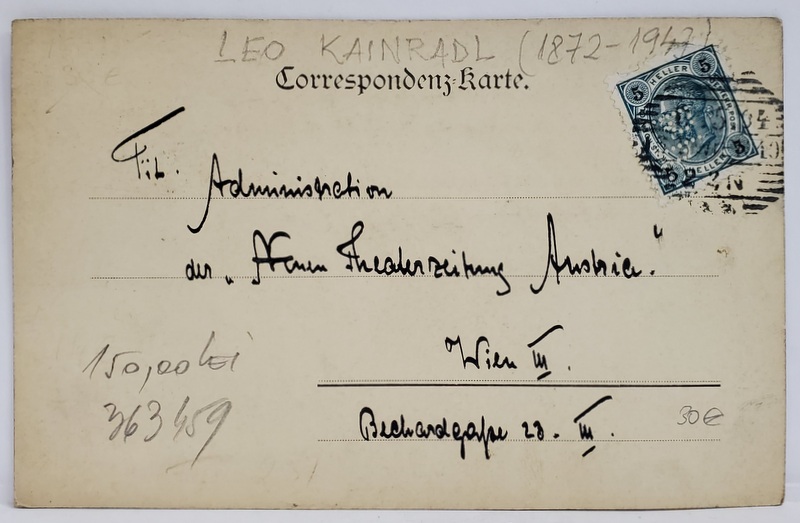 LEO KAINRADL (1872-1947)
Correspondenz-Karte.
5 HELLER 5
5 HELLER 5
Tit. Administration
der „Neuen Theaterzeitung Austria."
Wien III.
150,00 lei
Bechardgaße 23. III.
30€
363459